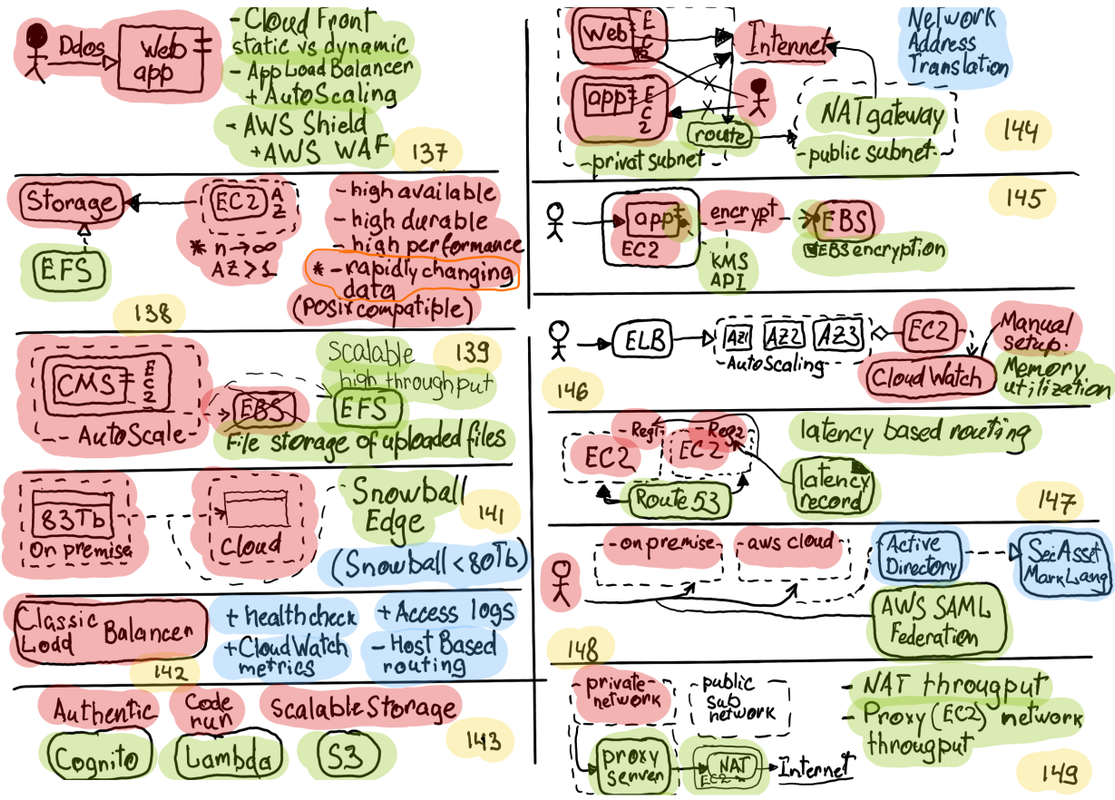 Ddos
Web
app
- Cloud Front
static vs dynamic
- App Load Balancer
+ AutoScaling
- AWS Shield
+ AWS WAF
137
Storage
EC2
AZ
EFS
* n→∞
AZ>1
- high available
- high durable
- high performance
* - rapidly changing
data
(POSIX compatible)
138
CMS
EC2
AutoScale
EBS
Scalable
high throughput
EFS
File storage of uploaded files
139
83Tb
On premise
Cloud
Snowball
Edge
(Snowball < 80Tb)
141
Classic
Load Balancer
+ healthcheck
+ CloudWatch
metrics
+ Access logs
- Host Based
routing
142
Authentic
Code
run
Scalable Storage
Cognito
Lambda
S3
143
Web
EC2
app
EC2
Internet
route
- privat subnet -
Network
Address
Translation
NAT gateway
- public subnet -
144
app
EC2
encrypt
EBS
KMS
API
EBS encryption
145
ELB
AZ1
AZ2
AZ3
AutoScaling
EC2
Cloud Watch
Manual
setup:
Memory
utilization
146
Reg1
Reg2
EC2
EC2
Route 53
latency based routing
latency
record
147
- on premise -
- aws cloud -
Active
Directory
Sec Asset
Mark Lang
AWS SAML
Federation
148
private
network
public
sub
network
proxy
server
NAT
EC2
Internet
- NAT througput
- Proxy (EC2) network
througput
149